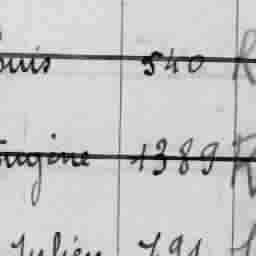 ouis 540 R
Eugène 1389 R
Julien 791